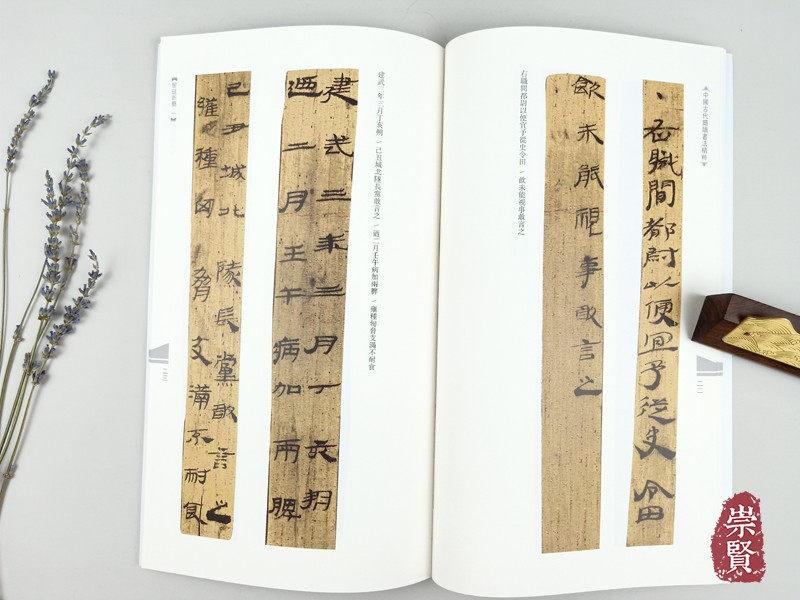 中國古代簡牘書法精粹
二二
、右職間都尉以便宜予從史令田
飲未能視事敢言之
右職間都尉以便宜予從史令田／飲未能視事敢言之
建武三年三月丁亥朔／己丑城北隧長黨敢言之／迺二月壬午病加兩脾／雍種匈脅支滿不耐食
建武三年三月丁亥朔
迺二月壬午病加兩脾
己丑城北隧長黨敢言之
雍種匈脅支滿不耐食
二三
崇賢